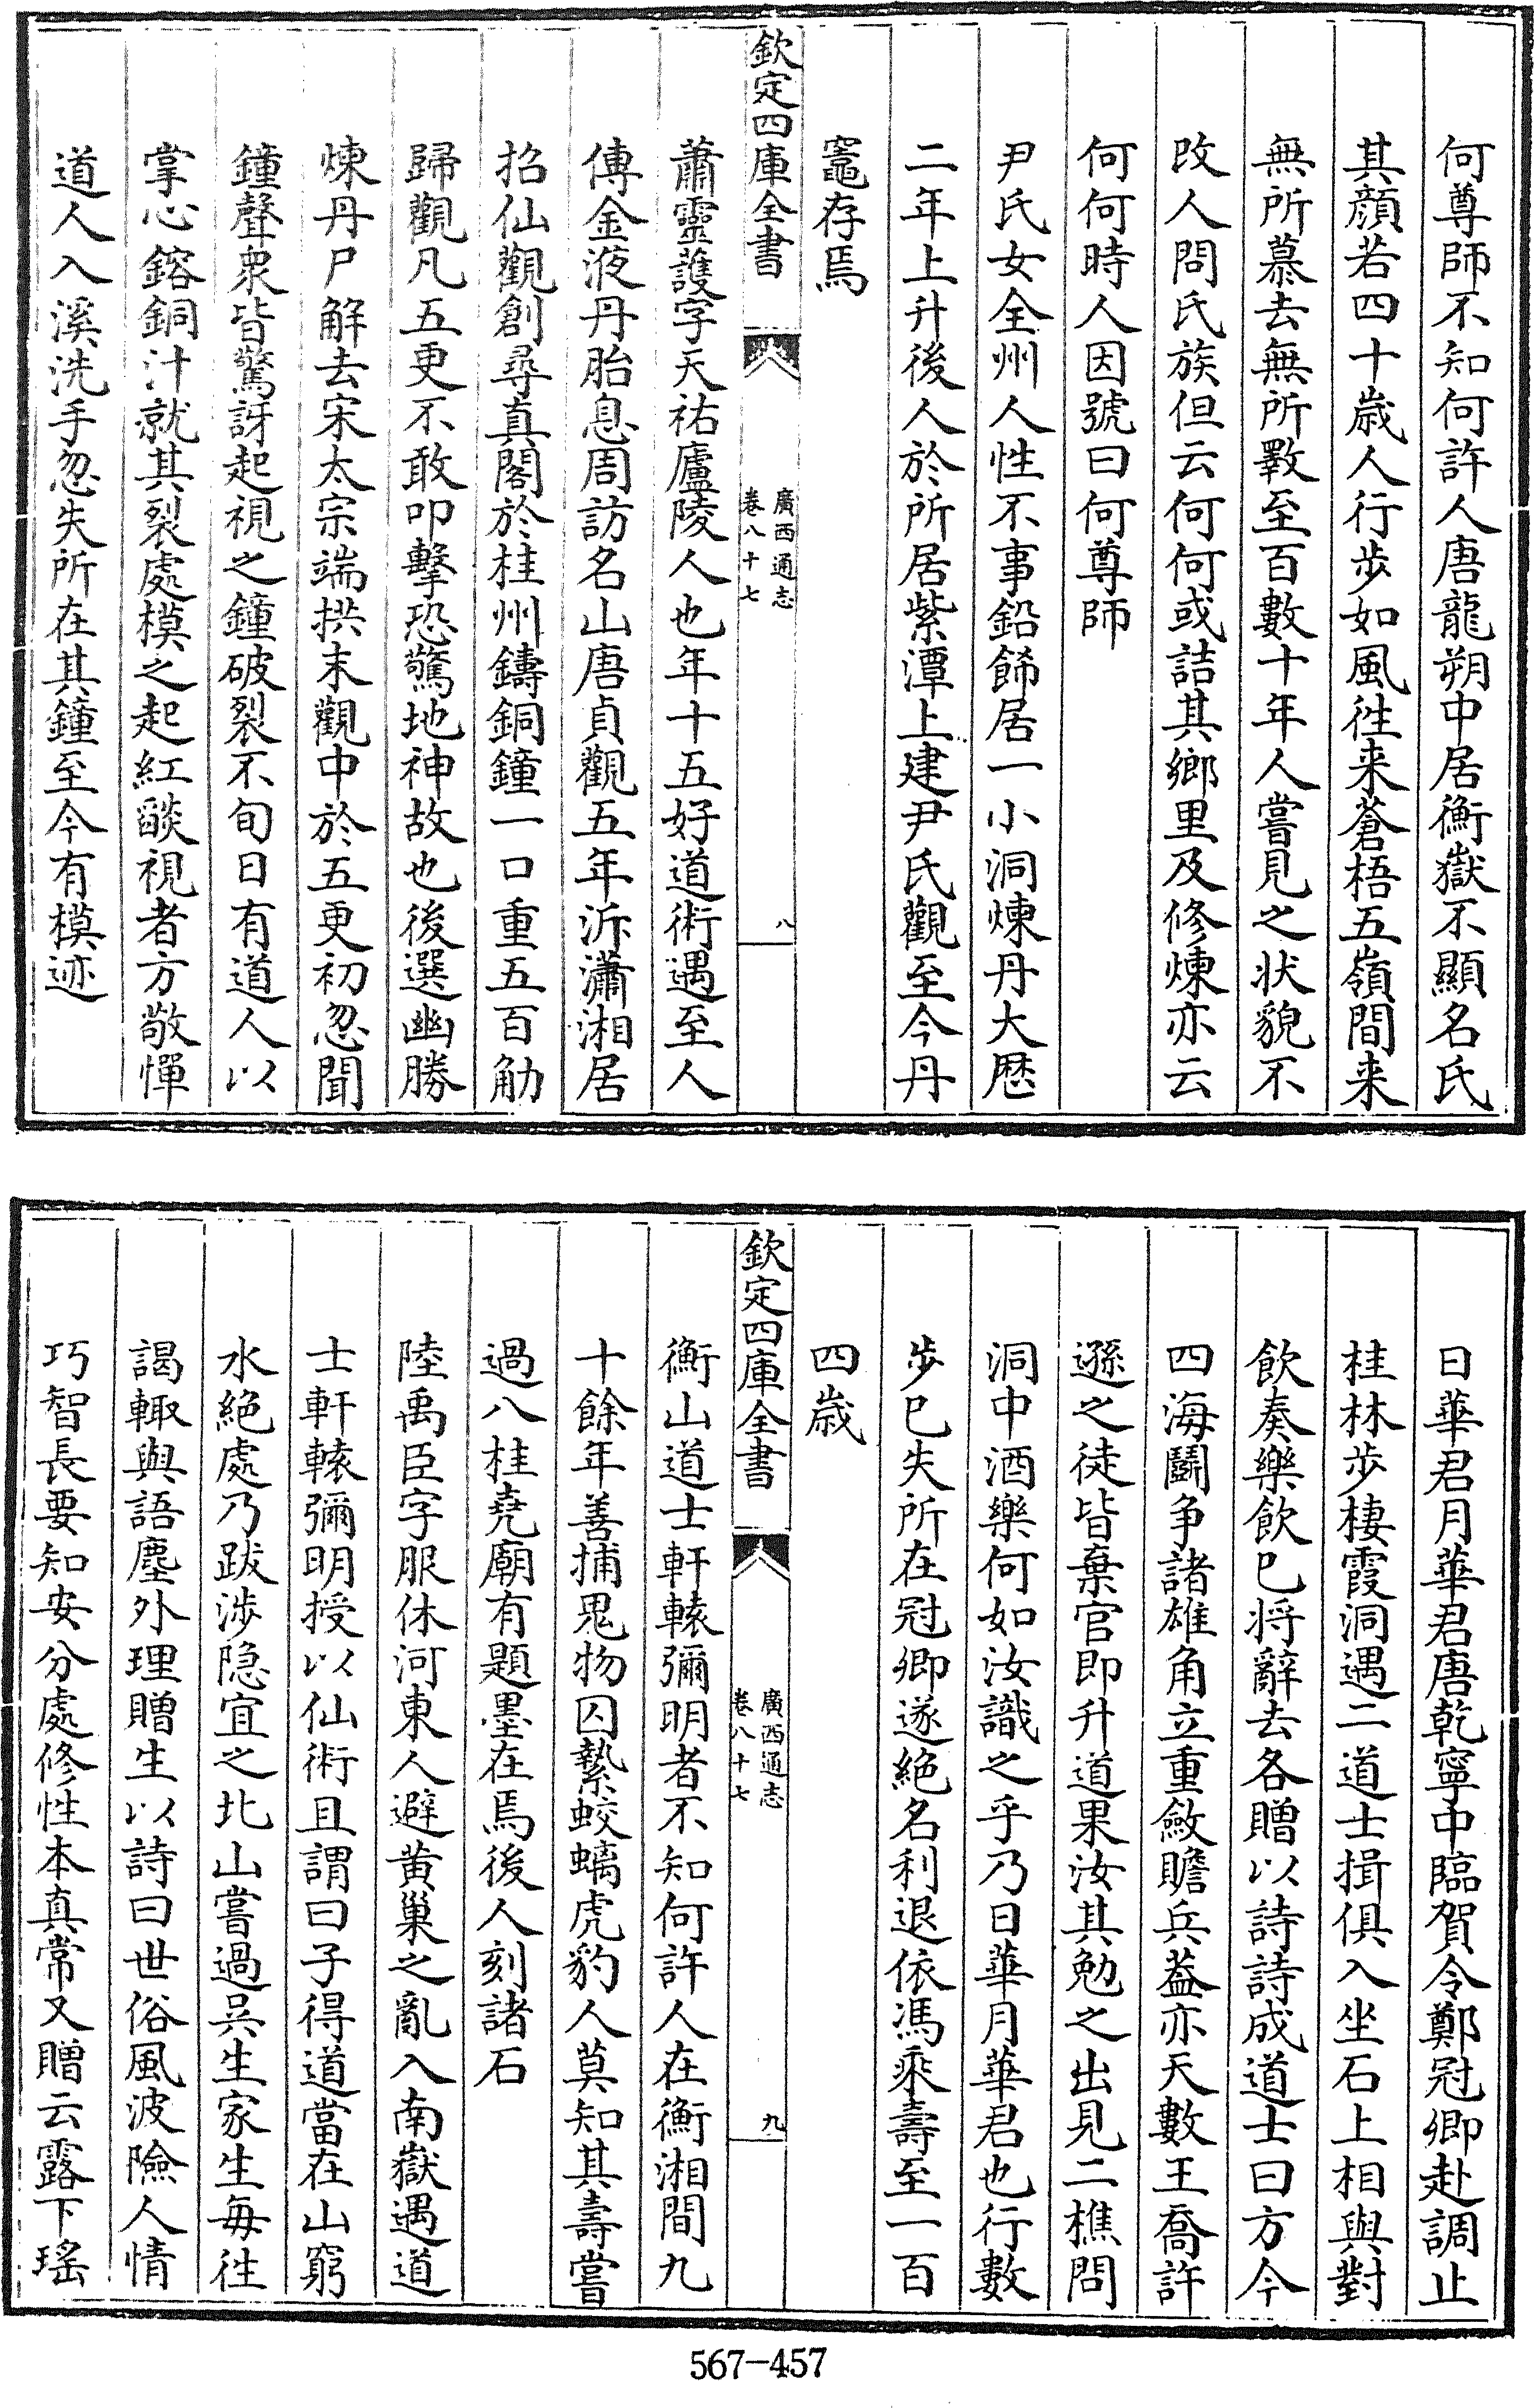 何尊師不知何許人唐龍朔中居衡嶽不顯名氏
其顔若四十歲人行步如風徃来蒼梧五嶺間来
無所慕去無所斁至百數十年人嘗見之狀貌不
改人問氏族但云何何或詰其鄉里及修煉亦云
何何時人因號曰何尊師
尹氏女全州人性不事鉛飾居一小洞煉丹大厯
二年上升後人於所居紫潭上建尹氏觀至今丹
竈存焉
欽定四庫全書
廣西通志
卷八十七
八
蕭靈護字天祐廬陵人也年十五好道術遇至人
傳金液丹胎息周訪名山唐貞觀五年泝瀟湘居
招仙觀創尋真閣於桂州鑄銅鐘一口重五百觔
歸觀凡五更不敢叩擊恐驚地神故也後選幽勝
煉丹尸解去宋太宗端拱末觀中於五更初忽聞
鐘聲衆皆驚訝起視之鐘破裂不旬日有道人以
掌心鎔銅汁就其裂處模之起紅燄視者方敬憚
道人入溪洗手忽失所在其鐘至今有模迹
日華君月華君唐乾寧中臨賀令鄭冠卿赴調止
桂林步棲霞洞遇二道士揖俱入坐石上相與對
飲奏樂飲已将辭去各贈以詩詩成道士曰方今
四海鬬争諸雄角立重斂贍兵葢亦天數王喬許
遜之徒皆棄官即升道果汝其勉之出見二樵問
洞中酒樂何如汝識之乎乃日華月華君也行數
步已失所在冠卿遂絕名利退依馮乘壽至一百
四歲
欽定四庫全書
廣西通志
卷八十七
九
衡山道士軒轅彌明者不知何許人在衡湘間九
十餘年善捕鬼物囚縶蛟螭虎豹人莫知其壽嘗
過八桂堯廟有題墨在焉後人刻諸石
陸禹臣字服休河東人避黄巢之亂入南嶽遇道
士軒轅彌明授以仙術且謂曰子得道當在山窮
水絕處乃跋涉隐宜之北山嘗過吳生家生每徃
謁輙與語塵外理贈生以詩曰世俗風波險人情
巧智長要知安分處修性本真常又贈云露下瑤
567-457